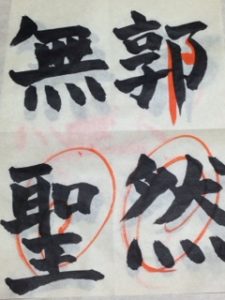 郭然
無聖